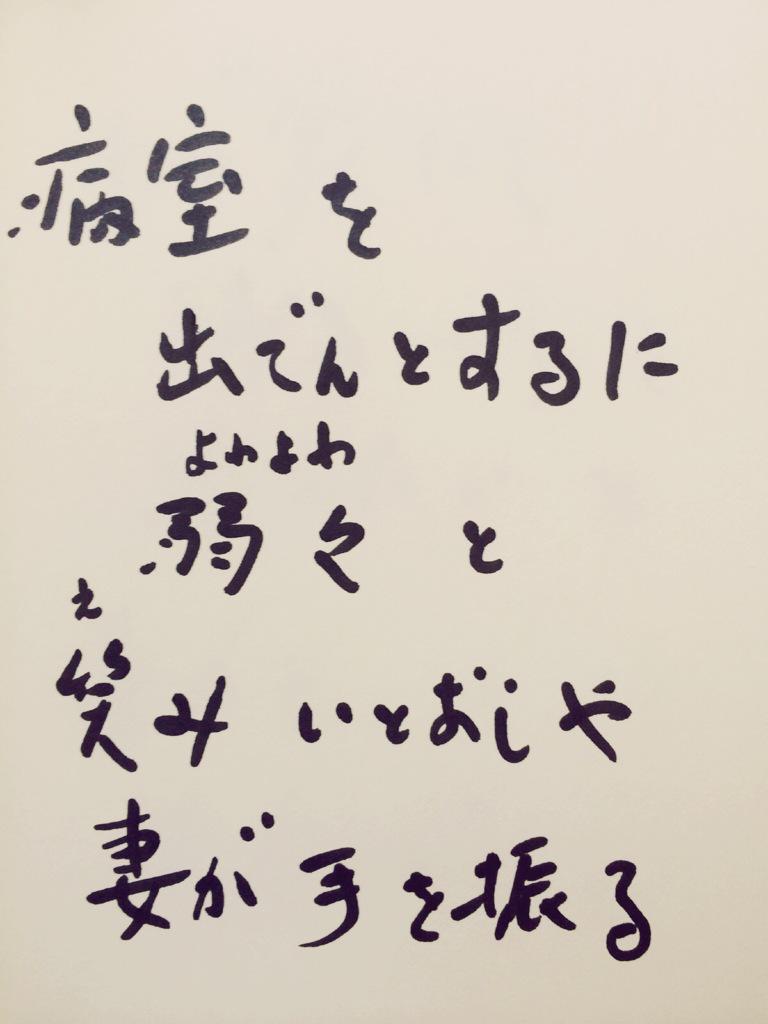 病室を
出でんとするに
よわよわ
弱々と
え
笑みいとおしや
妻が手を振る